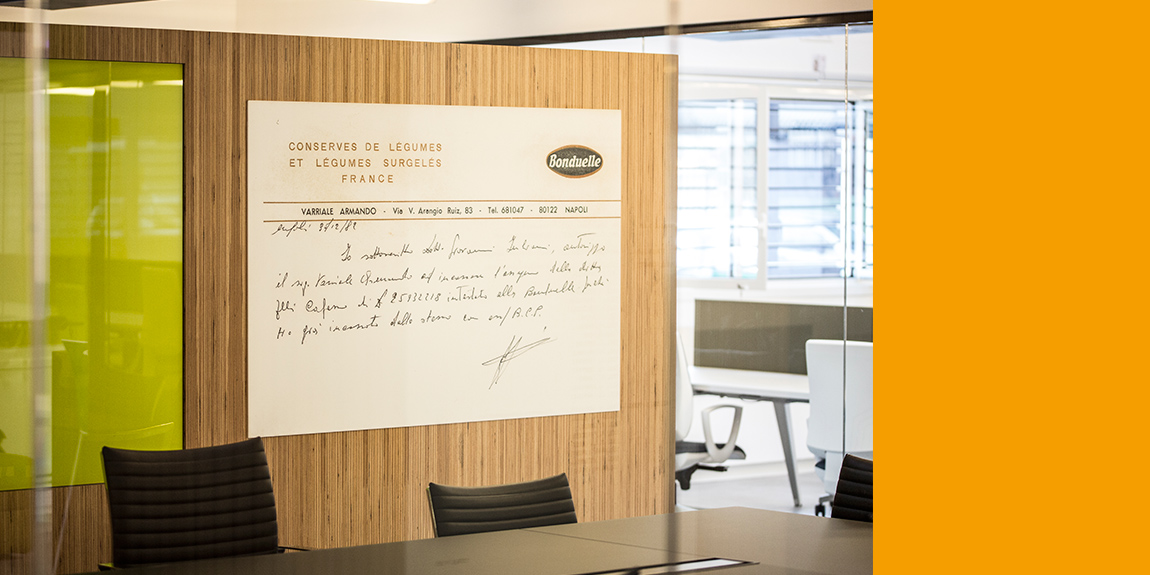 CONSERVES DE LÉGUMES
ET LÉGUMES SURGELÉS
FRANCE
Bonduelle
VARRIALE ARMANDO - Via V. Arangio Ruiz, 83 - Tel. 681047 - 80122 NAPOLI
Io sottoscritto Dott. Giovanni, autorizzo
il sig. Varriale Armando ad incassare l'assegno della ditta
F.lli di £ 25932218 intestato alla Bonduelle
Ho già incassato dallo stesso con B.P.P.